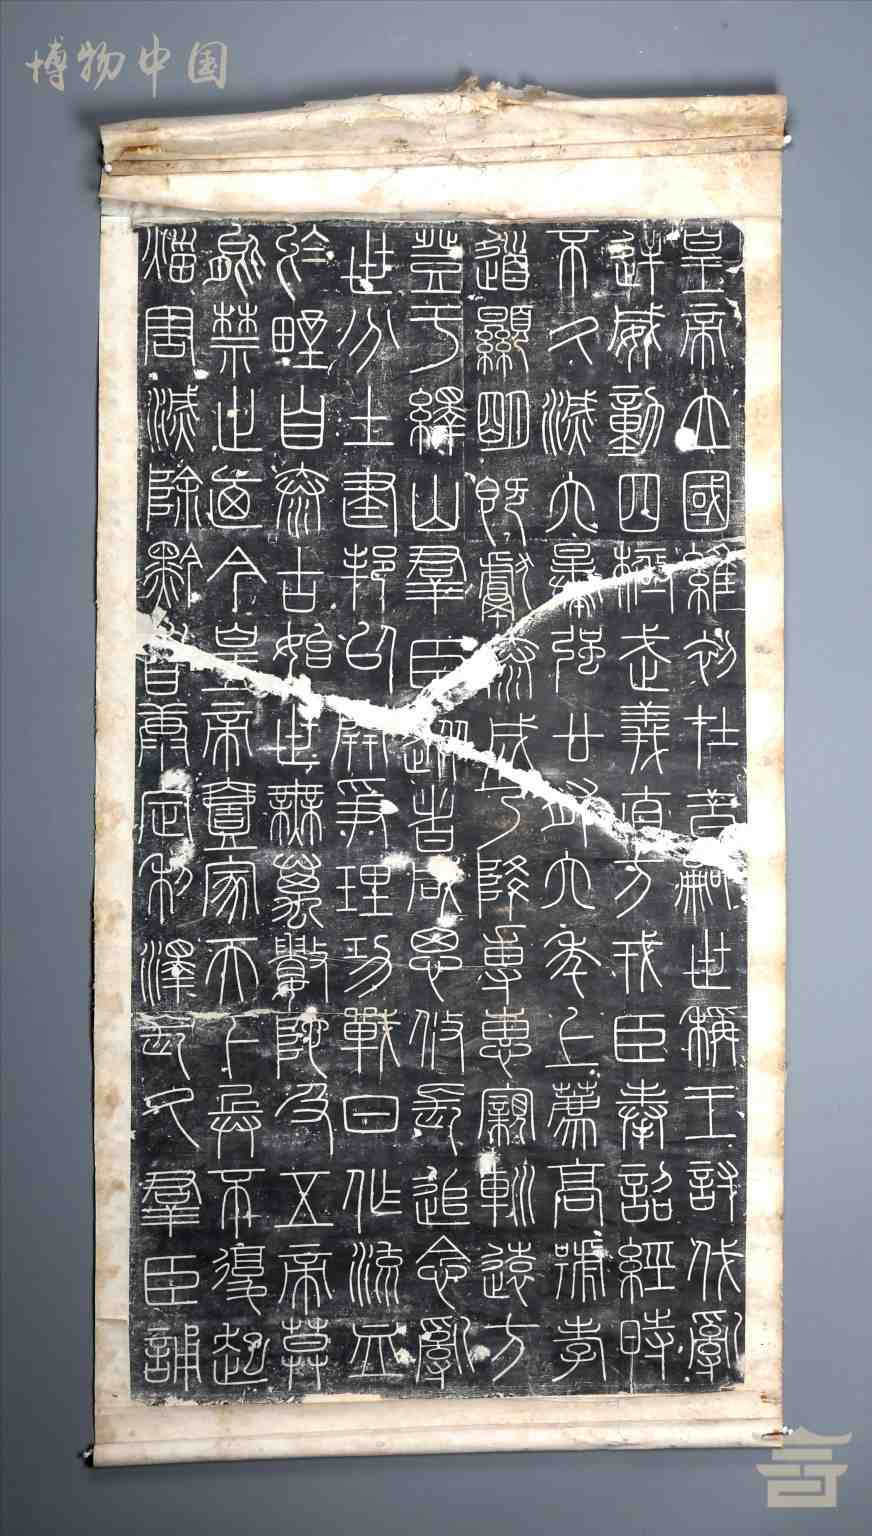 博物中国
皇帝立國維初在昔嗣世稱王討伐亂
逆威動四極武義直方戎臣奉詔經時
不久滅六暴强廿有六年上薦高號孝
道顯明既獻泰成乃降専惠寴䡅遠方
登于繹山羣臣從者咸思攸長追念亂
世分土建邦以開爭理功戰日作流血
於野自泰古始世無萬數陀及五帝莫
能禁止迺今皇帝壹家天下兵不復起
災害滅除黔首康定利澤長久羣臣誦